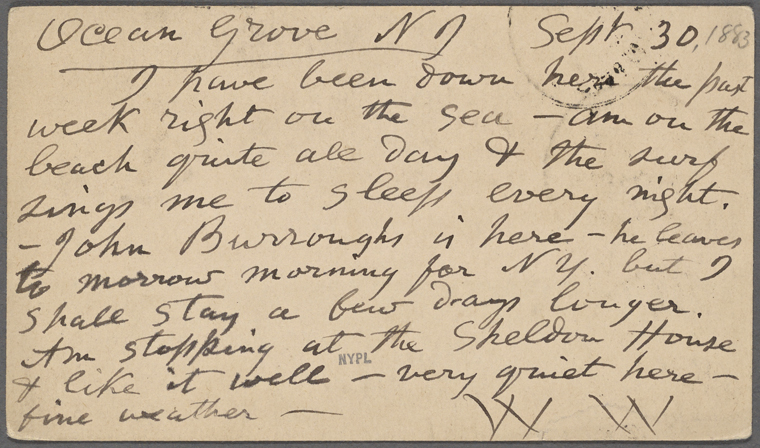 Ocean Grove N J Sept 30, 1883
I have been down here the past
week right on the sea – am on the
beach quite all day & the surf
sings me to sleep every night.
– John Burroughs is here – he leaves
to morrow morning for N Y. but I
shall stay a few days longer.
Am stopping at the Sheldon House
NYPL
& like it well – very quiet here –
fine weather – W W